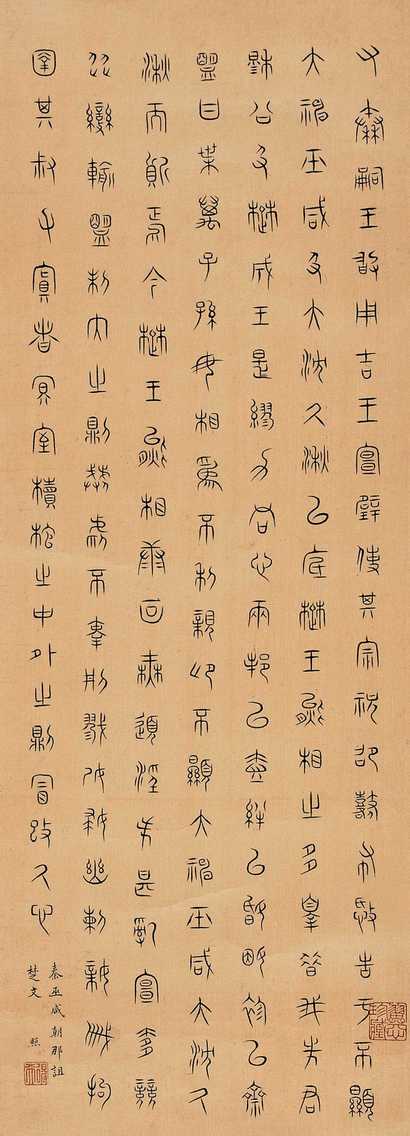 又秦嗣王敢用吉玉宣璧使其宗祝邵鼛布愍告于不顯
大神巫咸及大沈久湫以底楚王熊相之多辠昔我先君
穆公及楚成王是繆力同心兩邦以壹絆以婚姻袗以齋
盟曰枼萬子孫毋相為不利親卬不顯大神巫咸大沈久
湫而質焉今楚王熊相康回無道淫失甚亂宣奓競
從變輸盟制內之則暴虐不辜刑戮孕婦幽刺親戚拘
圉其叔父寘者冥室櫝棺之中外之則冒改久心
秦巫咸朝那詛
楚文